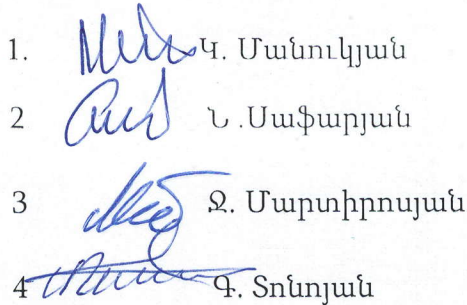 1. Կ. Մանուկյան
2 Ն .Սաֆարյան
3 Ջ. Մարտիրոսյան
4 Գ. Տոնոյան